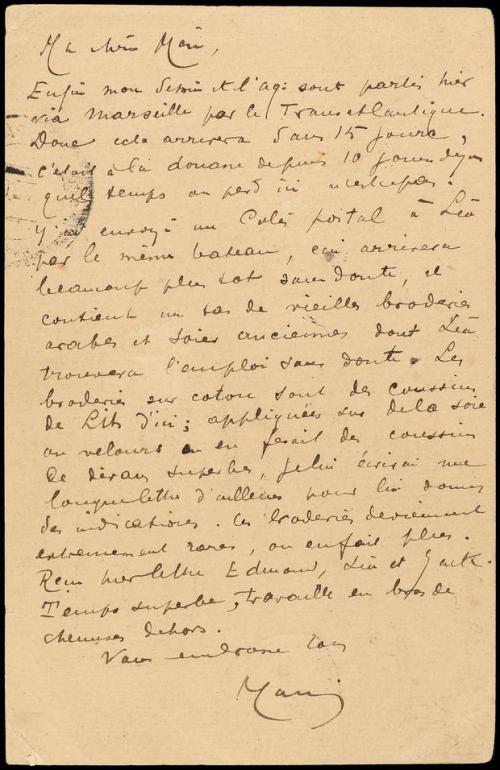 Ma chère Mère,
Enfin mon dessin et l'aq: sont partis hier
via Marseille par le Transatlantique.
Donc cela arrivera dans 15 jours,
c'était à la douane depuis 10 jours déjà
quel temps on perd ici n'est ce pas.
J'ai envoyé un Colis postal à Léa
par le même bateau, qui arrivera
beaucoup plus tôt sans doute, il
contient un tas de vieilles broderies
arabes et soies anciennes dont Léa
trouvera l'emploi sans doute. Les
broderies sur coton sont des coussins
de Lits d'ici; appliquées sur de la soie
ou velours on en ferait des coussins
de divan superbes, je lui écrirai une
longue lettre d'ailleurs pour lui donner
des indications. Ces broderies deviennent
extrêmement rares, on en fait plus.
Reçu hier lettre Edmond, Léa et
Temps superbe, travaille en bras de
chemises dehors.
Vous embrasse tous